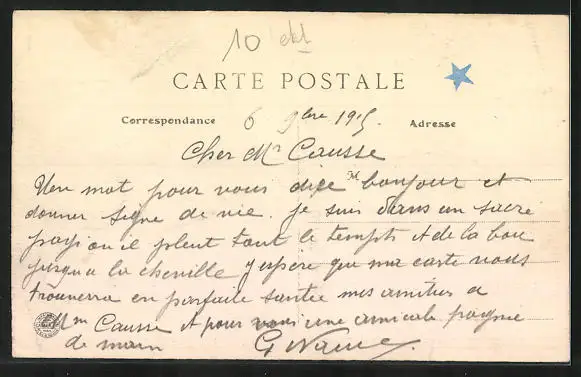 10
CARTE POSTALE
Correspondance 6 9bre 1915. Adresse
Cher Mr Causse
Un mot pour vous dire bonjour et
donner signe de vie. je suis dans un sacré
pays ou il pleut tout le tempts et de la boue
jusqu'a la cheville j'espère que ma carte vous
trouvera en parfaite santée mes amities a
Mm Causse et pour vous une amicale pognee
de main G